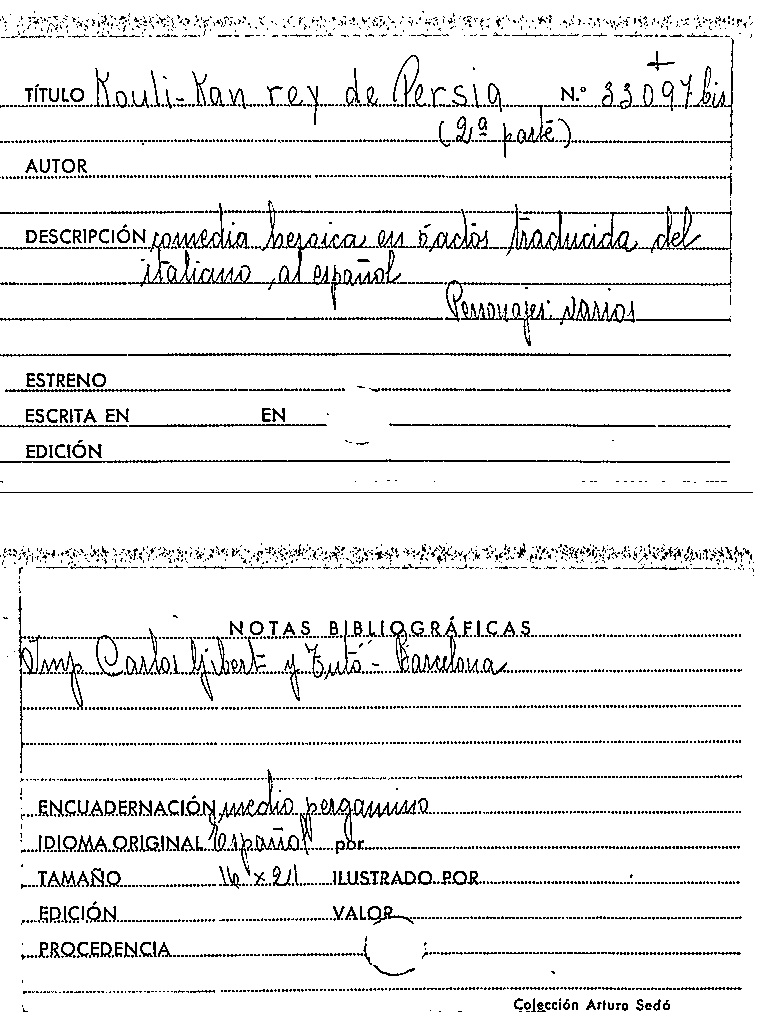 TÍTULO Kouli-Kan rey de Persia N.º 33097 bis
(2ª parte)
AUTOR
DESCRIPCIÓN comedia heroica en 5 actos traducida del
italiano al español
Personajes: varios
ESTRENO
ESCRITA EN EN
EDICIÓN
NOTAS BIBLIOGRÁFICAS
Imp Carlos Gibert y Tutó - Barcelona
ENCUADERNACIÓN medio pergamino
IDIOMA ORIGINAL Español por
TAMAÑO 16 x 21 ILUSTRADO POR
EDICIÓN VALOR
PROCEDENCIA
Colección Arturo Sedó